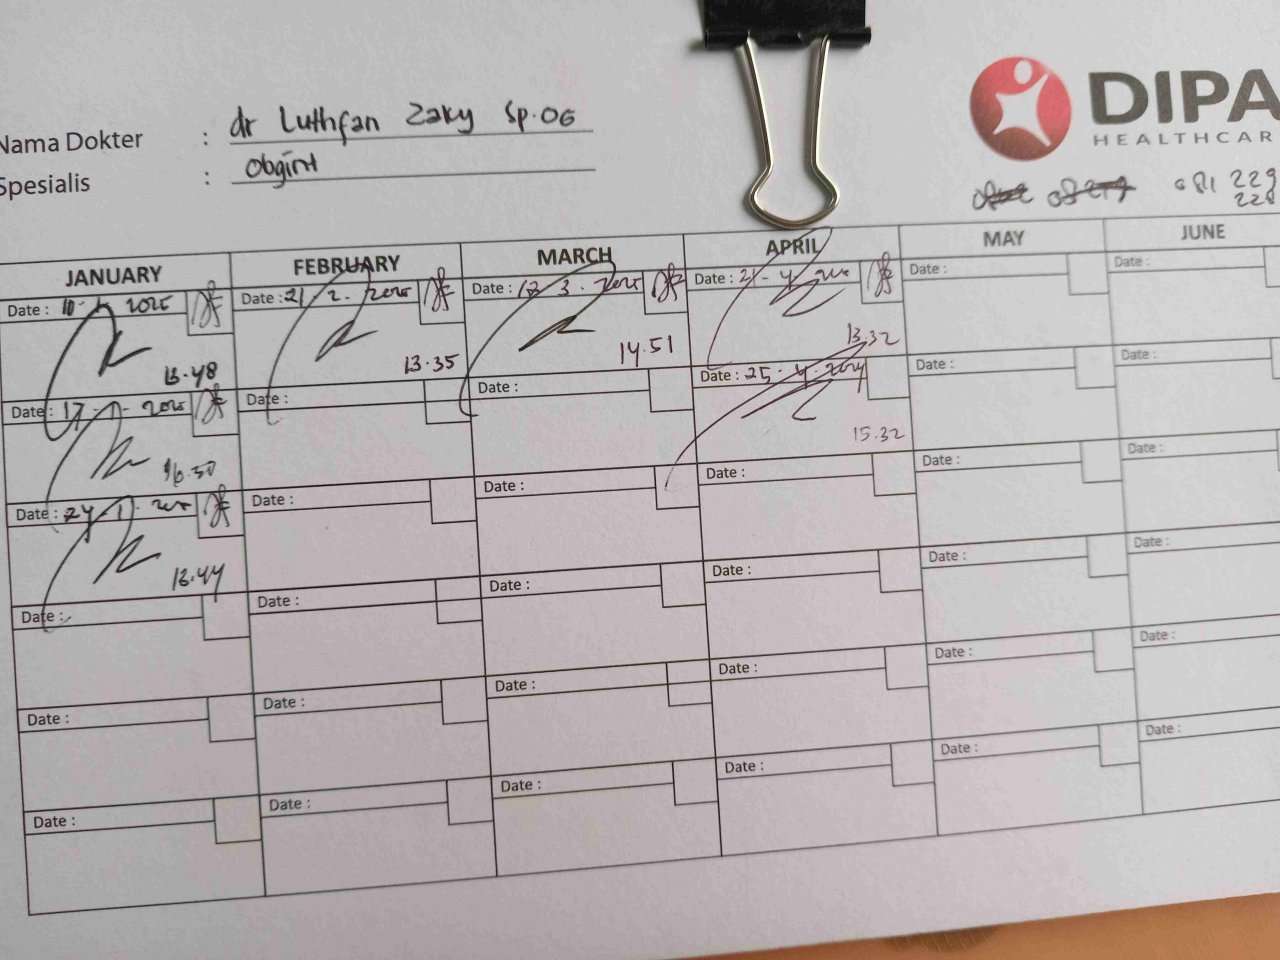 DIPA
HEALTHCAR
Nama Dokter : dr Luthfan Zaky Sp.OG
Spesialis : Obgin
081 229
228
JANUARY FEBRUARY MARCH APRIL MAY JUNE
Date : 10-1-2025 Date : 21/2-2025 Date : 12 3.2025 Date : 21-4 Date : Date :
13.48 13.35 14.51 13.32
Date : 17- -2025 Date : Date : Date : 25.4.2024 Date : Date :
16.50 15.32
Date : 24-1- Date : Date : Date : Date : Date :
13.44
Date : Date : Date : Date : Date : Date :
Date : Date : Date : Date : Date : Date :
Date : Date : Date : Date : Date : Date :